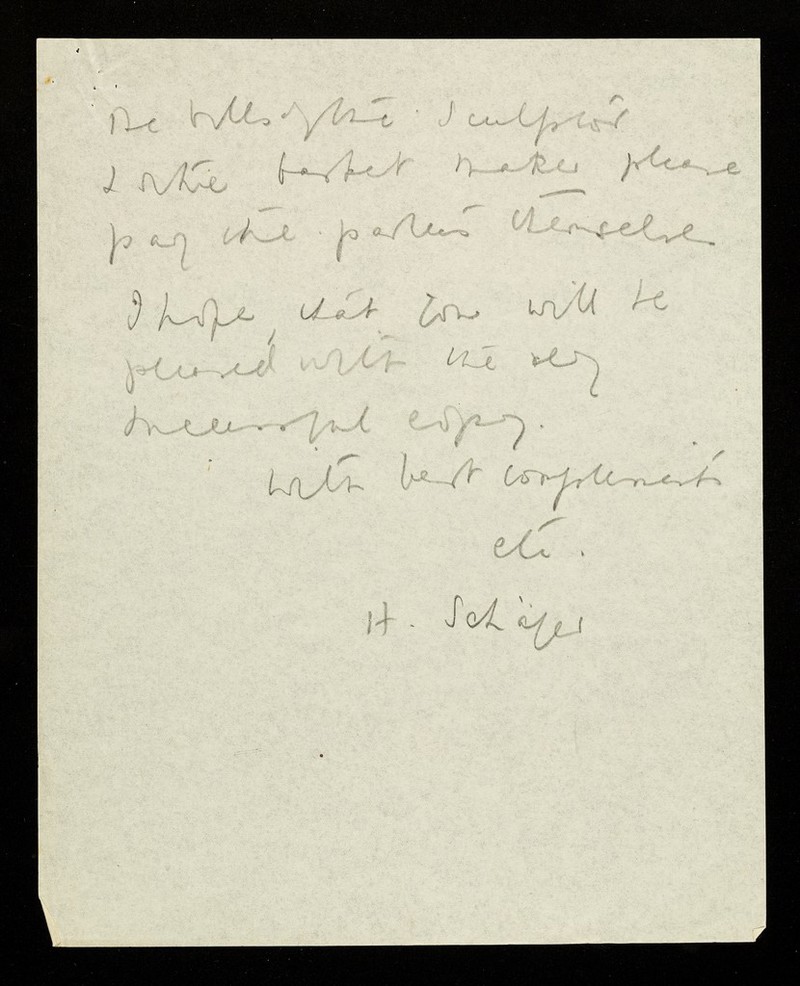 The bills of the Sculptor
& the basket maker please
pay the parties themselves
I hope, that you will be
pleased with the very
successful copy.
With best compliments
etc.
H. Schäfer